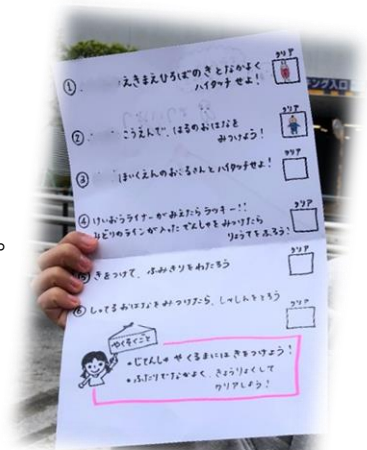 クリア
① えきまえひろばのきとなかよく
ハイタッチせよ!
クリア
② こうえんで、はるのおはなを
みつけよう!
クリア
③ ほいくえんのおにさんとハイタッチせよ!
クリア
④ けいおうライナーがみえたらラッキー!!
みどりのラインが入ったでんしゃをみつけたら
りょうてをふろう!
クリア
⑤ きをつけて、ふみきりをわたろう
クリア
⑥ しってるおはなをみつけたら、しゃしんをとろう
やくそくごと
・じてんしゃやくるまにはきをつけよう!
・ふたりでなかよく、きょうりょくして
クリアしよう!